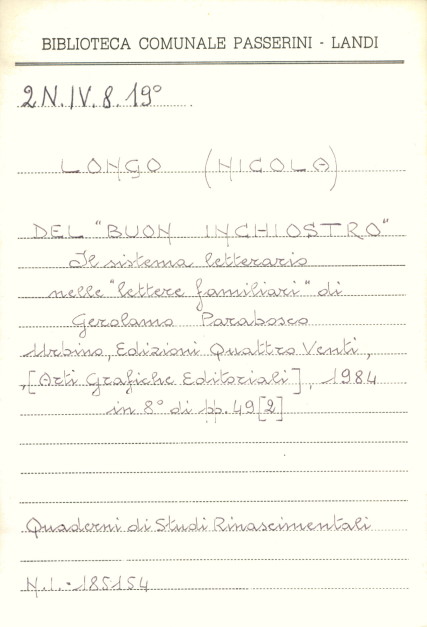 BIBLIOTECA COMUNALE PASSERINI - LANDI
2N.IV.8.19°
LONGO (NICOLA)
DEL "BUON INCHIOSTRO"
Il sistema letterario
nelle "lettere familiari" di
Gerolamo Parabosco
Urbino, Edizioni Quattro Venti,
[Arti Grafiche Editoriali], 1984
in 8° di pp. 49[2]
Quaderni di Studi Rinascimentali
N.I.-185154